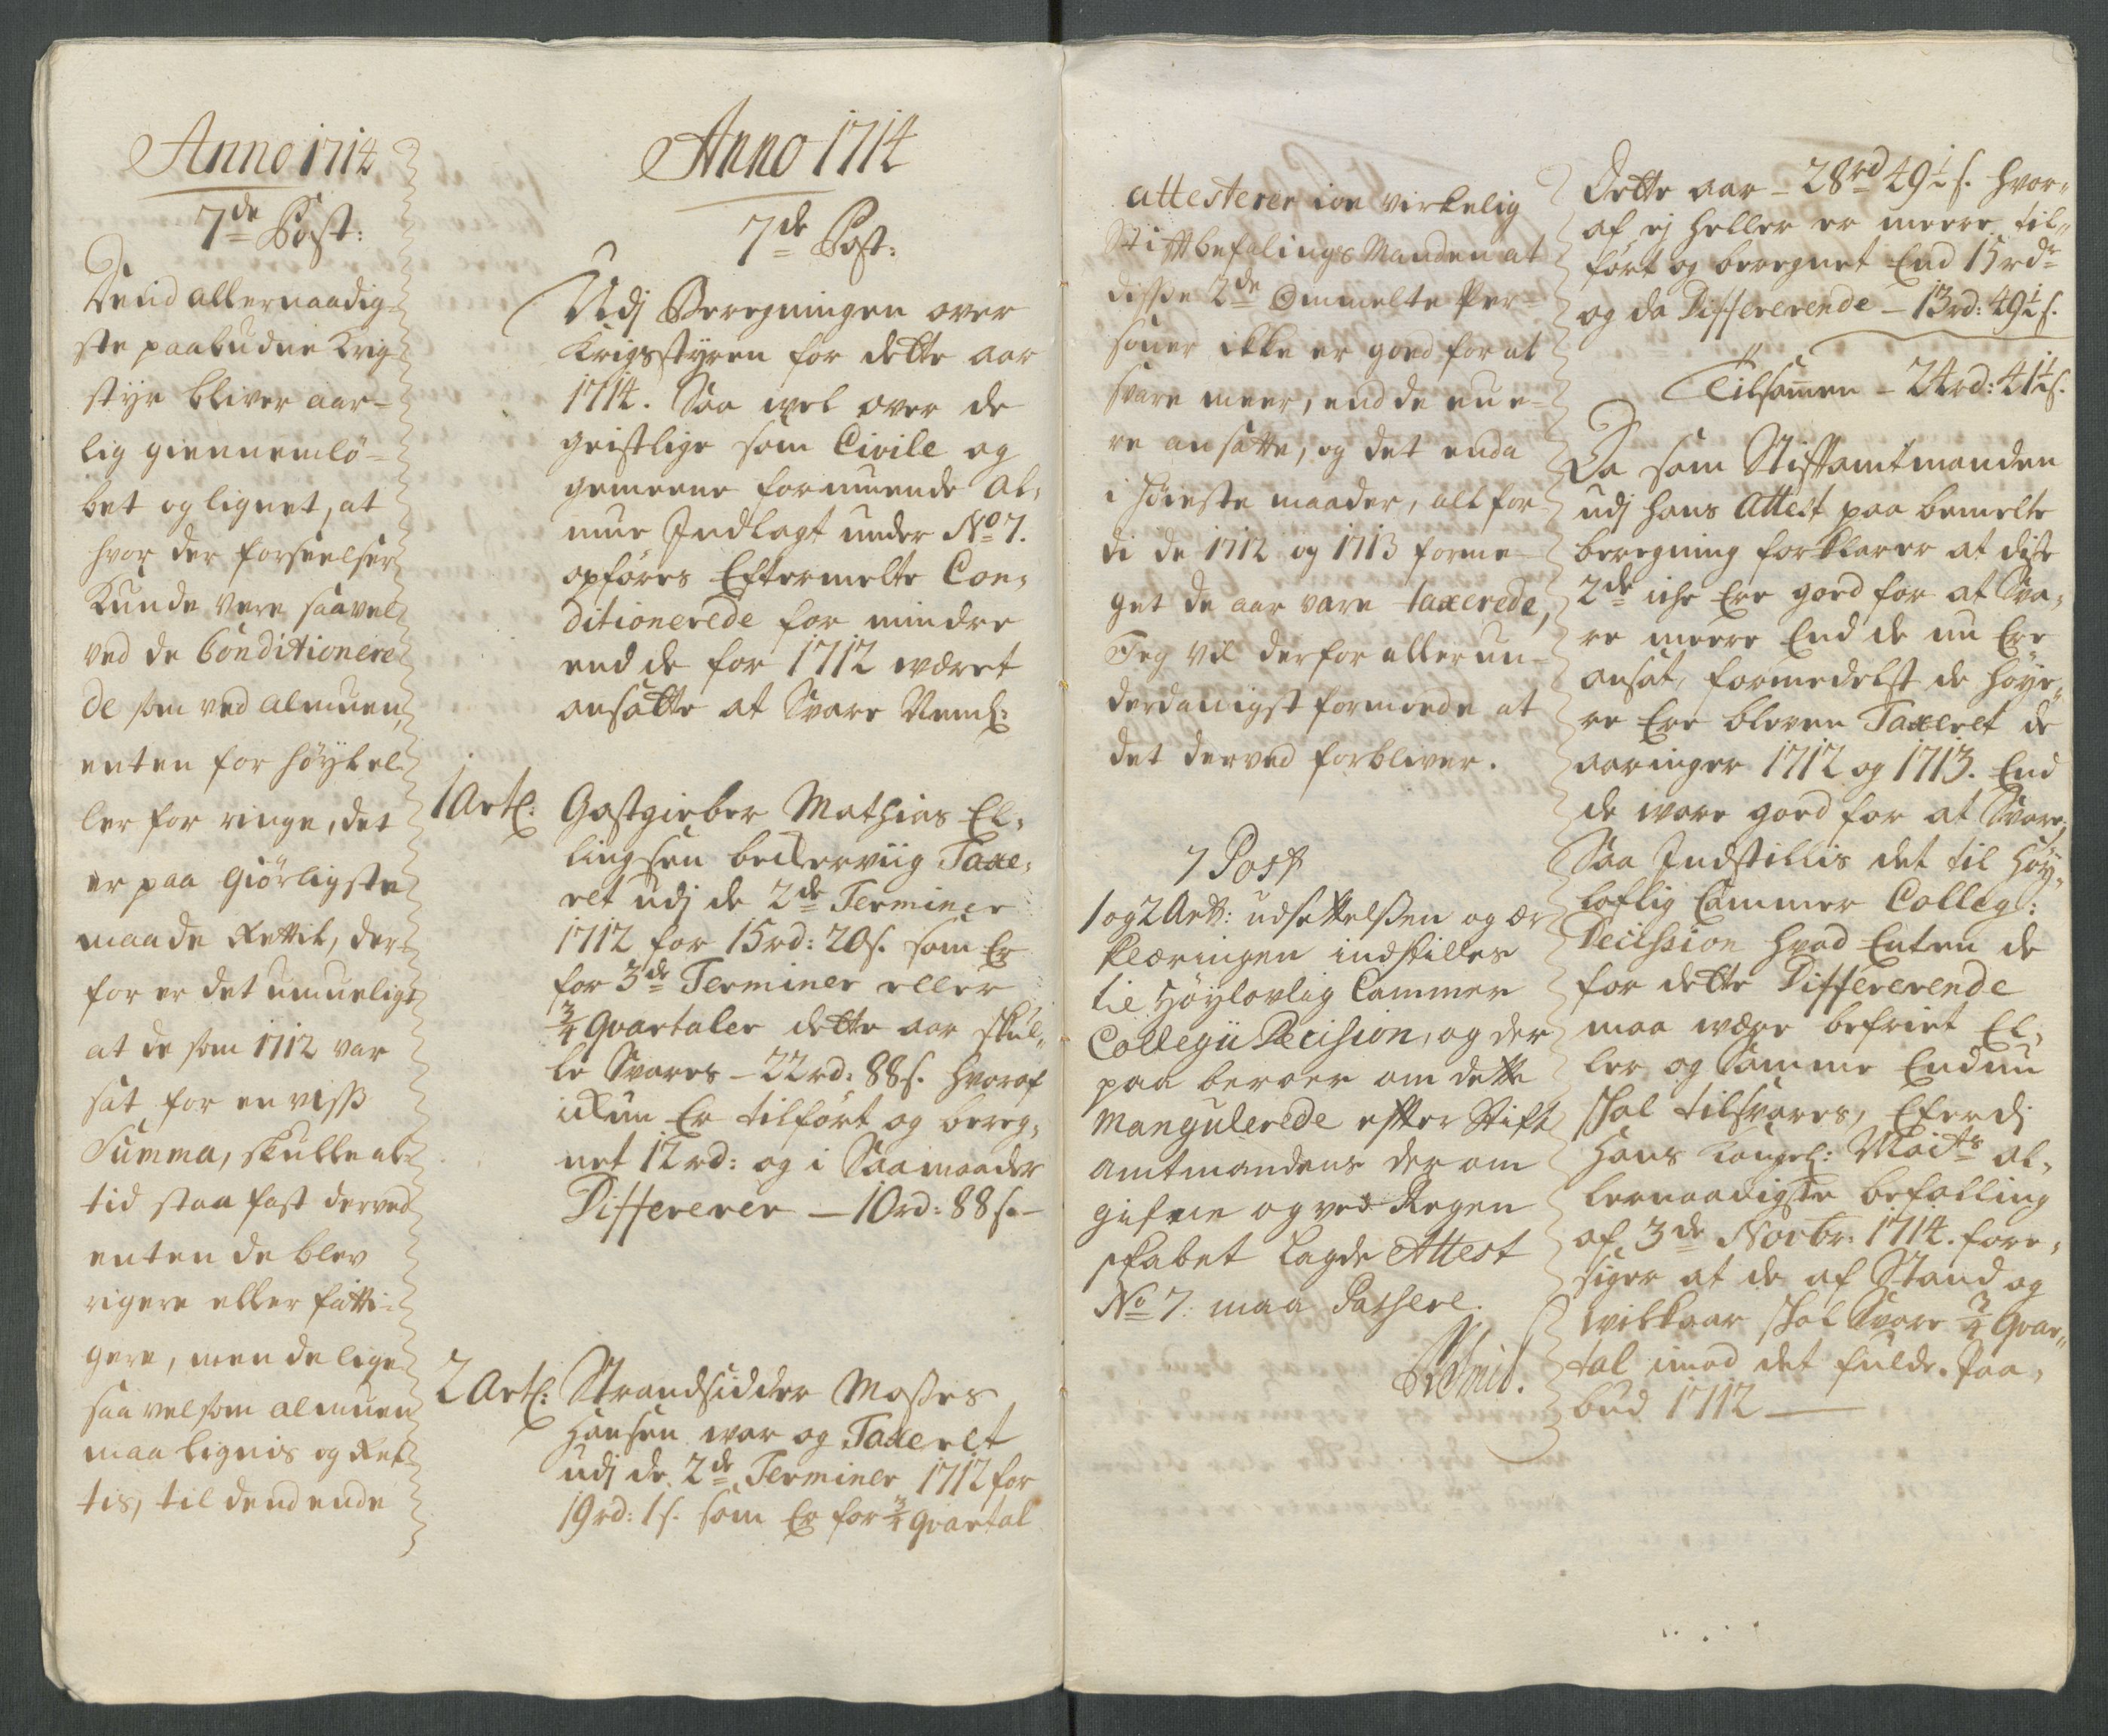 Anno 1714
7de Post:
Dend allernaadig-
ste paabudne Krig
styr bliver aar-
lig giennemlö-
bet og lignet, at
hvor der forseelser
kunde vere saavel
ved de Conditionere
de som ved almuen,
enten for höyt el-
ler for ringe, det
er paa giörligste
maade Rettit, der-
for er det umueligt
at de som 1712 var
sat for en viss
Summa, skulle al-
tid staa fast derved
enten de blev
rigere eller fatti-
gere, men de lige
saa vel som almuen
maa lignis og Ret-
tis, til dend ende
Anno 1714
7de Post:
Udj Beregningen over
Krigsstyren for dette aar
1714. Saa wel over de
geistlige som Civile og
gemeene formuende Al-
mue Indlagt under No 7.
opföres Eftermelte Con-
ditionerede for mindre
end de for 1712 wæret
ansatte at Svare Neml:
1 Artl: Gastgieber Mathias El-
lingsen Taxe-
ret udj de 2de Terminer
1712 for 15rd: 20s. som Er
for 3de Terminer eller
3/4 Qvartaler dette aar skul-
le Svares - 22rd: 88s. hvoraf
ickun Er tilfört og bereg-
net 12rd: og i Saa maader
Differerer - 10rd: 88s.-
2 Artl: Strandsidder Moses
Hansen war og Taxeret
udj de 2de Terminer 1712 for
19rd: 1s. som Er for 3/4 qvartal
attesterer virkelig
Stiftbefalings Manden at
disse 2de Ommelte Per-
soner ikke er goed for at
svare meer, end de nu e-
re ansatte, og det enda
i höieste maader, all for-
di de 1712 og 1713 forme-
get de aar vare taxerede,
Jeg vil derfor allerun-
derdanigst formode at
det derved forbliver.
7 Post
1 og 2 Art: udsettelsen og er
klæringen indstilles
til Höylovlig Cammer
Collegii Decision, og der
paa beroer om dette
Mangulerede efter Stift
amtmandens der om
gifne og ved Regen
skabet lagde Attest
No 7. maa Passere.
Dette aar - 28rd 49½s. hvor-
af ej heller er meere til-
fört og beregnet End 15rdr
og da Differerende - 13rd: 49½s.
Tilsamen - 24rd: 41½s.
Da som Stiftamtmanden
udj hans Attest paa bemelte
beregning forklarer at disse
2de iche Ere goed for at Sva-
re meere End de nu Ere
ansat, formedelst de höye-
re Ere bleven Taxeret de
aaringer 1712 og 1713. End
de ware goed for at Svare,
Saa Indstillis det til Höy-
loflig Cammer Colleg:
Decission hvad Enten de
for dette Differerende
maa wære befriet El-
ler og Samme Endnu
skal tilsvares, Eferdj
Hans Kongel: Maits al-
lernaadigste befalling
af 3de Novbr: 1714. fore-
siger at de af Stand og
wilkaar skal Svare 3/4 Qvar-
tal imod det fulde Paa-
bud 1712